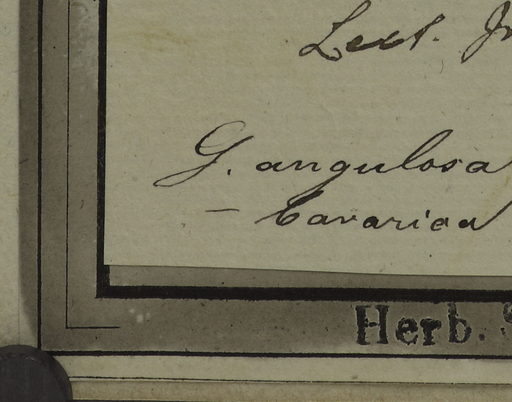 Lect.
G. angulosa
– bavarica
Herb.